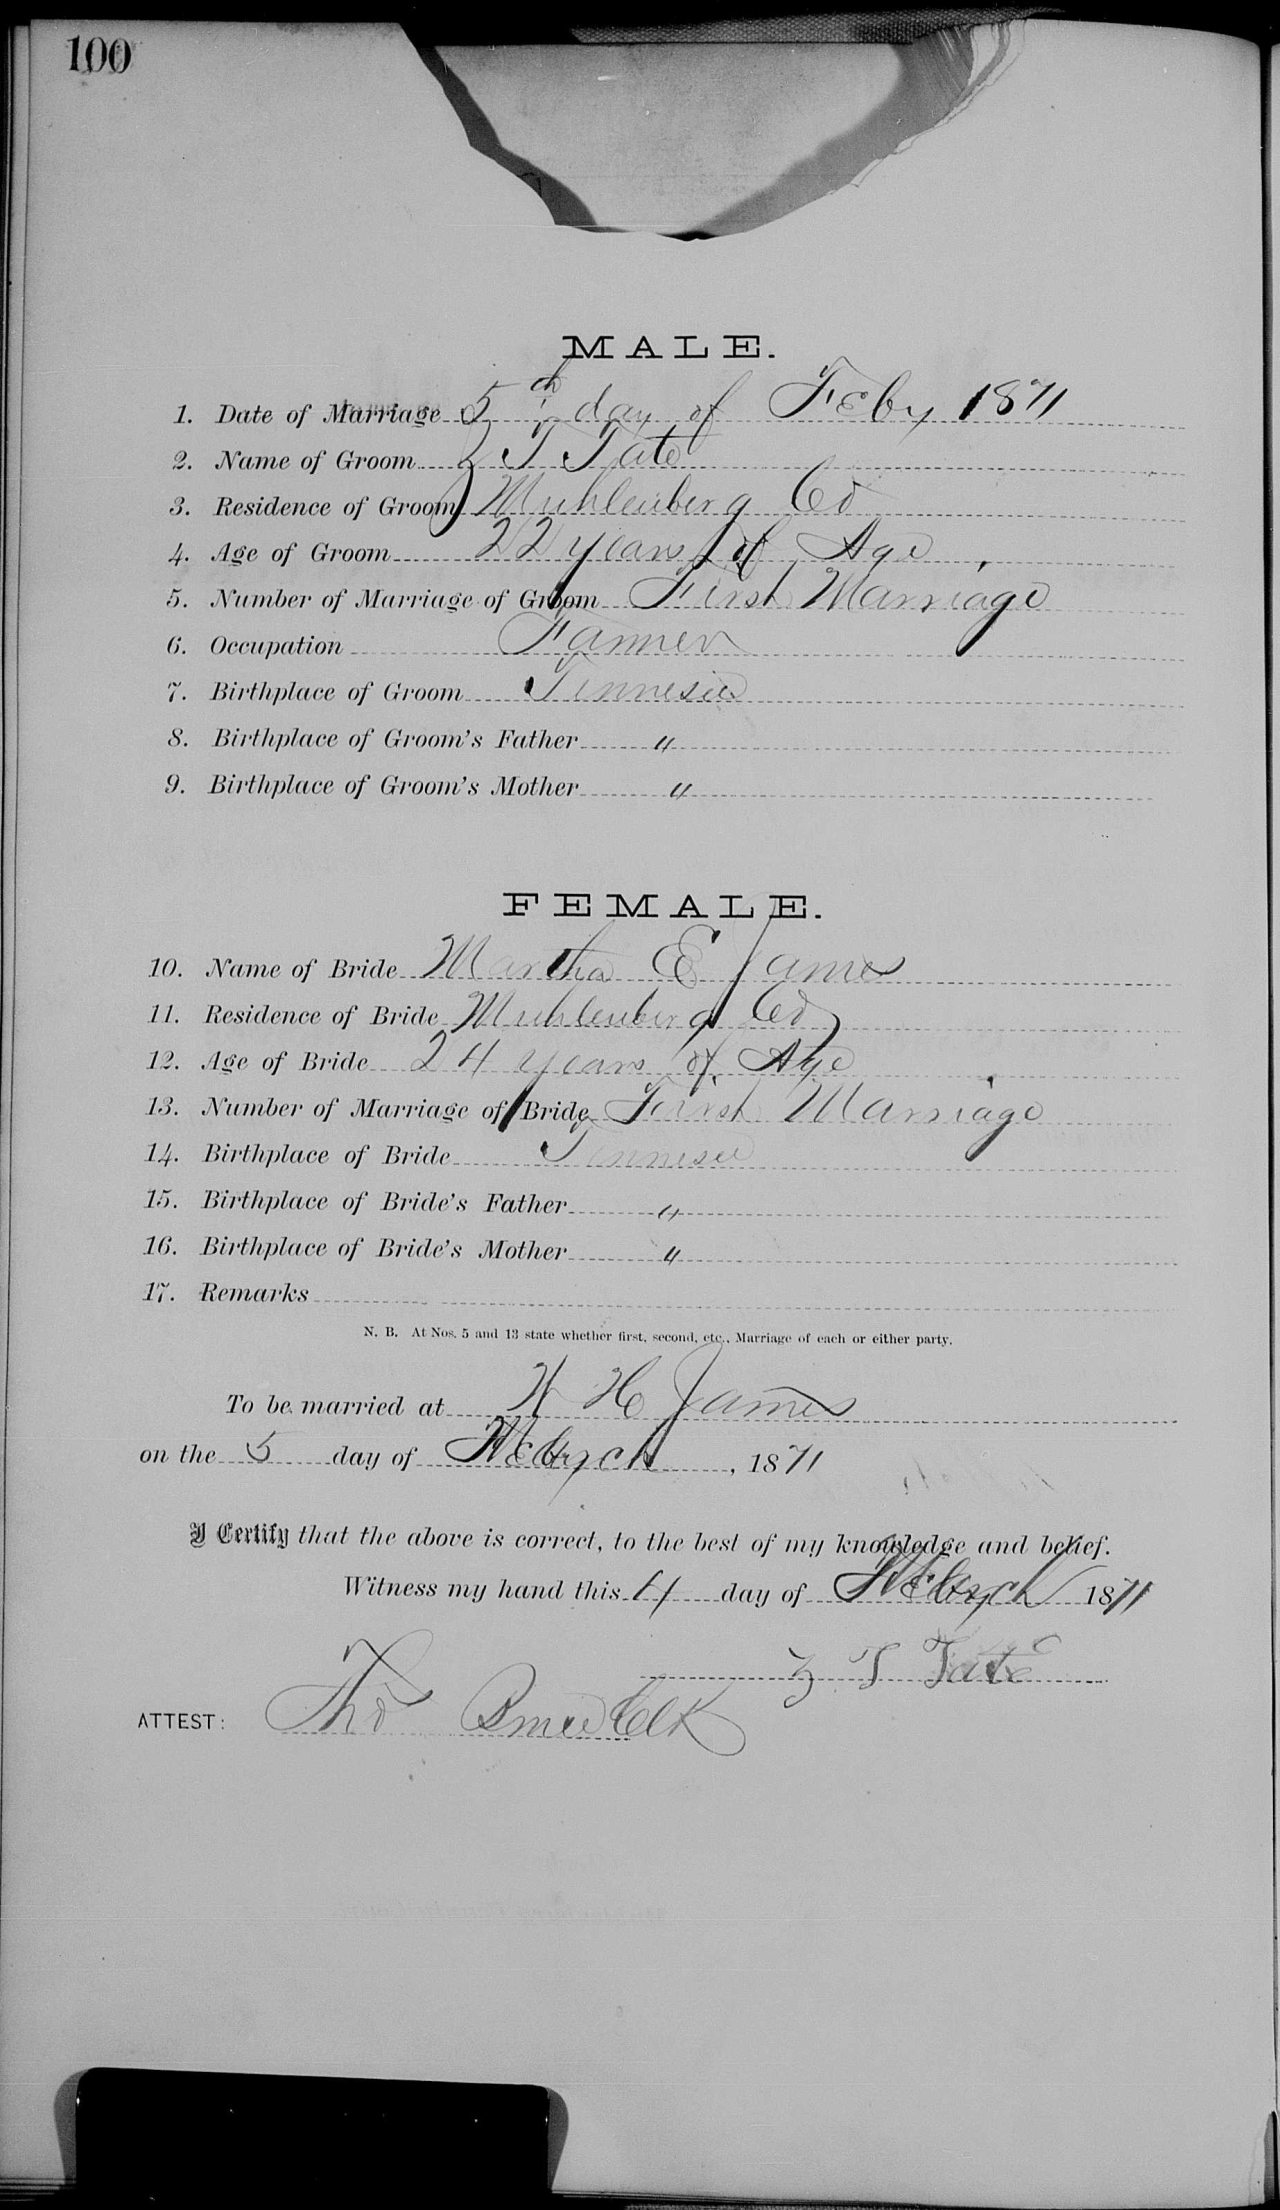 100
MALE.
1. Date of Marriage 5th day of Feby 1871
2. Name of Groom Z T Tate
3. Residence of Groom Muhlenberg Co
4. Age of Groom 22 years of Age
5. Number of Marriage of Groom First Marriage
6. Occupation Farmer
7. Birthplace of Groom Tennessee
8. Birthplace of Groom's Father "
9. Birthplace of Groom's Mother "
FEMALE.
10. Name of Bride Martha E James
11. Residence of Bride Muhlenberg Co
12. Age of Bride 24 years of Age
13. Number of Marriage of Bride First Marriage
14. Birthplace of Bride Tennessee
15. Birthplace of Bride's Father "
16. Birthplace of Bride's Mother "
17. Remarks
N. B. At Nos. 5 and 13 state whether first, second, etc., Marriage of each or either party.
To be married at W H James
on the 5 day of Feby, 1871
I Certify that the above is correct, to the best of my knowledge and belief.
Witness my hand this 4 day of Feby 1871
Z T Tate
ATTEST: Tho Bruce Clk